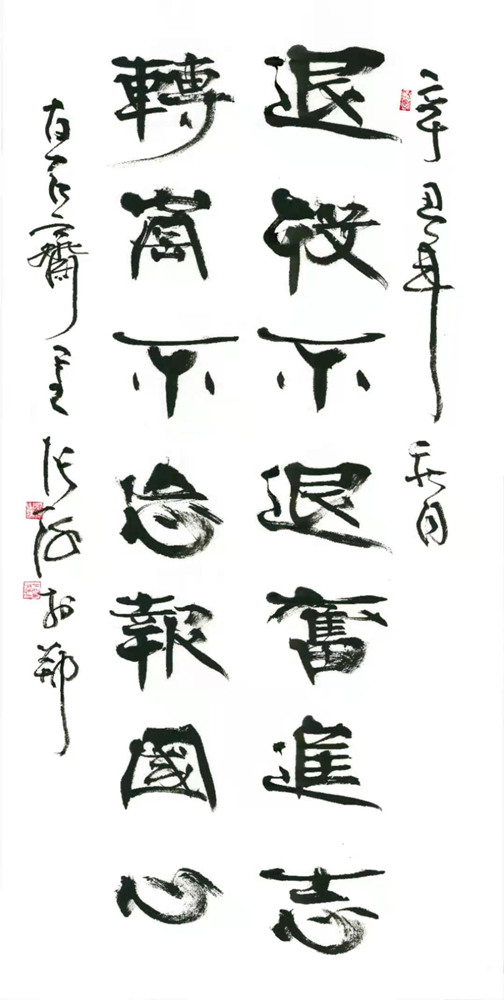 辛丑年 月
退役不退奮進志
轉崗不忘報國心
石齋主 於鄭